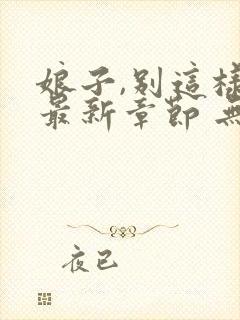 娘子,别這樣
最新章節 無
夜已